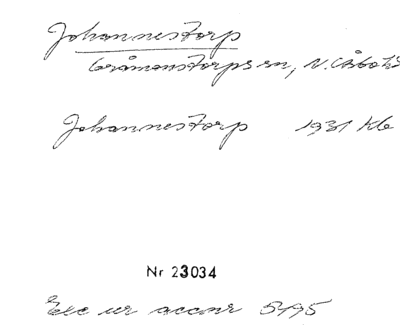 Johannestorp
Gråmanstorps sn, N. Åsbo hd
Johannestorp 1931 Kb
Nr 23034
Exc ur accnr 5495